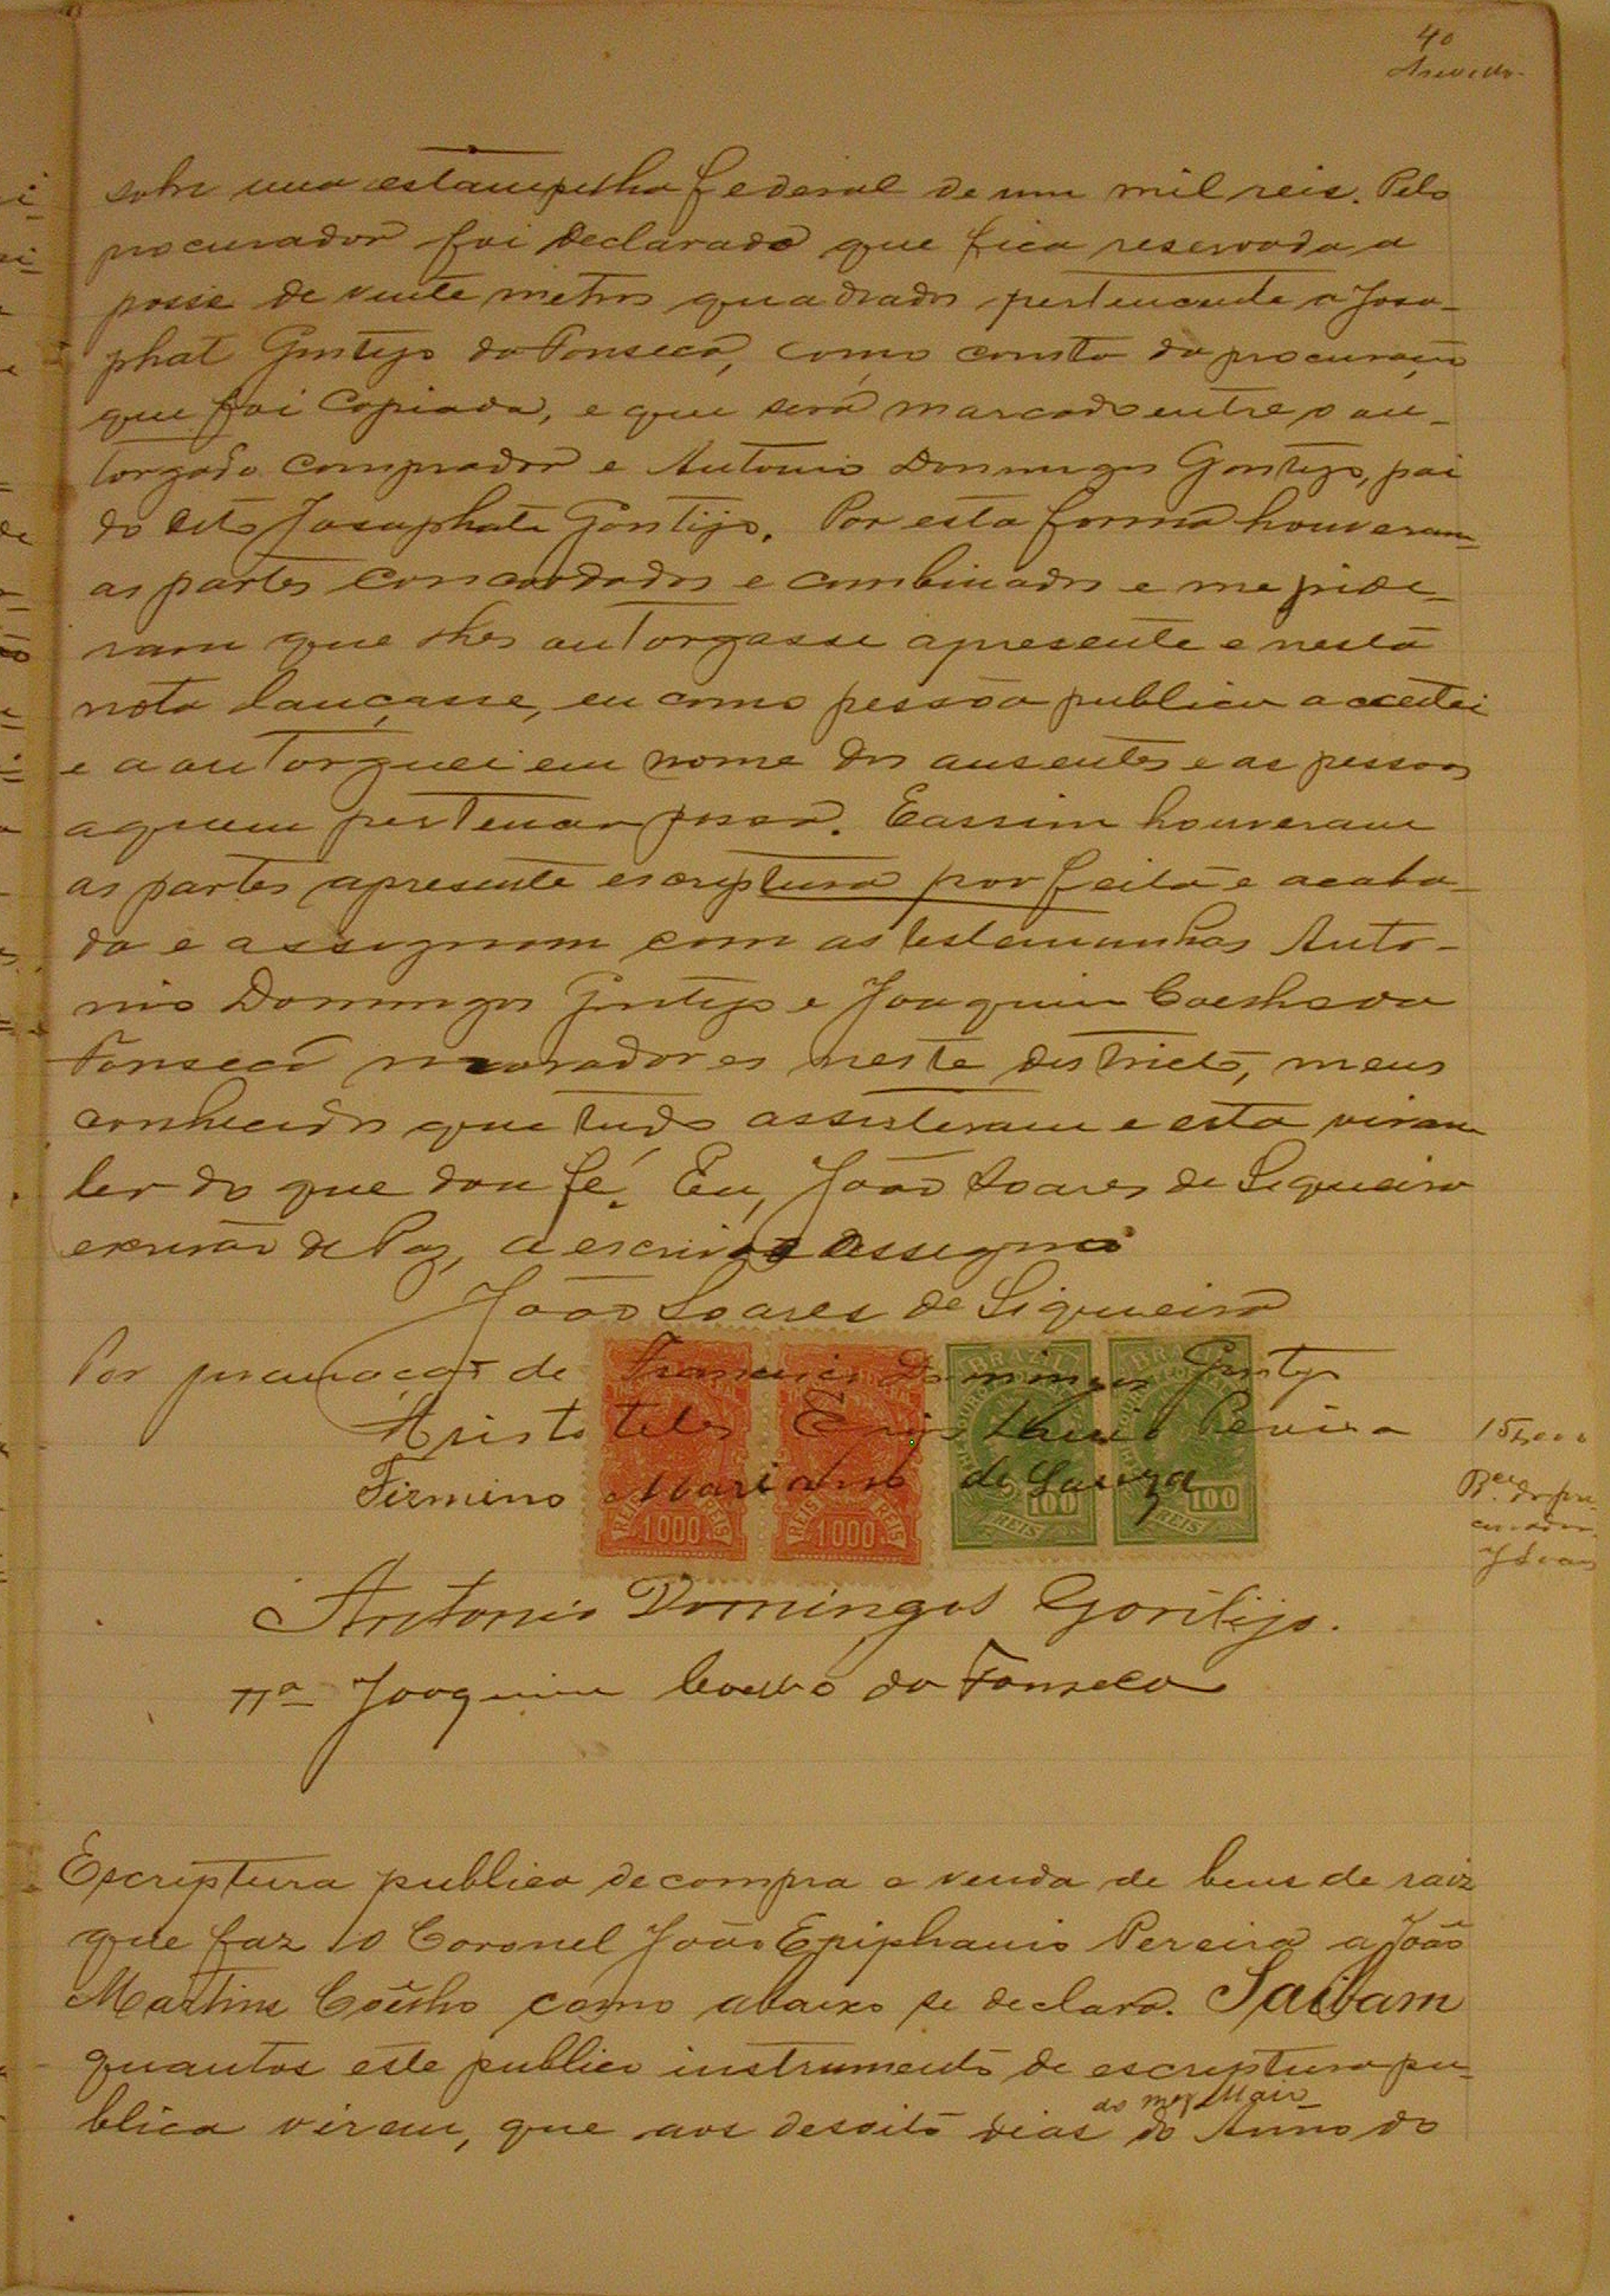 40
Azevedo
sobre uma estampilha federal de um mil reis. Pelo
procurador foi declarado que fica reservada a
posse de vinte metros quadrados pertencente a Josa-
phat Gontijo da Fonseca, como consta da procuração
que foi copiada, e que será marcado entre o ou-
torgado comprador e Antonio Domingos Gontijo, pai
do dito Josaphate Gontijo. Por esta forma houveram
as partes concordados e combinados e me pide-
ram que lhes outorgasse apresente e nesta
nota lançasse, eu como pessôa publica a acceitei
e a outorguei em nome dos ausentes e as pessoas
aquem pertencer possa. E assim houveram
as partes apresente escriptura por feita e acaba-
da e assignam com as testemunhas Anto-
nio Domingos Gontijo e Joaquim Coelho da
Fonseca moradores neste districto, meus
conhecidos que tudo assisteram e esta viram
ler do que dou fé. Eu, João Soares de Siqueira
escrivão de Paz, a escrivi e assigno
João Soares de Siqueira
Por procuração de Francisco Domingos Gontijo
Aristoteles Epiphanio Pereira
Firmino Mariano de Souza
BRAZIL
BRAZIL
REIS 1000 REIS
REIS 1000 REIS
100 REIS
100 REIS
15
Antonio Domingos Gontijo.
Tª Joaquim Coelho da Fonseca
Escriptura publica de compra e venda de bens de raiz
que faz o Coronel João Epiphanio Pereira a João
Martins Coêlho como abaixo se declara. Saibam
quantos este publico instrumento de escriptura pu-
do mez Maio
blica virem, que aos desoito dias do Anno do